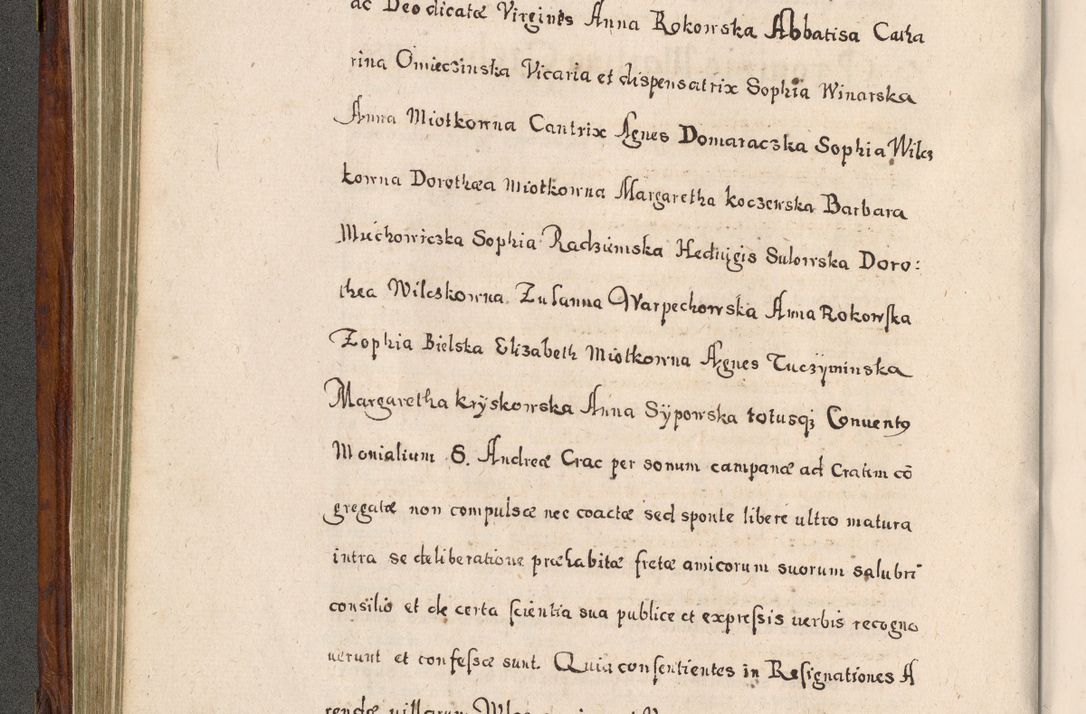 ac Deo dicatæ Virgines Anna Rokowska Abbatisa Catha
rina Omieczinska Vicaria et dispensatrix Sophia Winarska
Anna Miotkowna Cantrix Agnes Domaraczka Sophia Wilcz
kowna Dorothæa Miotkowna Margaretha Koczewska Barbara
Muchowiczka Sophia Radziemska Heduigis Sulowska Doro:
thea Wilczkowna Zuſanna Warpechowska Anna Rokowſka
Zophia Bielska Elizabeth Miotkowna Agnes Tuczÿminska
Margaretha Krÿskowska Anna Sÿpowska totusqꝫ Conuentꝰ
Monialium S. Andreæ Crac per sonum campanæ ad Cratim cō
gregatæ non compulsæ nec coactæ sed sponte libere ultro matura
intra se deliberatione præhabitæ fretæ amicorum suorum salubri
consilio et de certa ſcientia sua publice et expreſsis uerbis recogno
uerunt et confeſsæ sunt. Quia conſentientes in Reſignationes A
rendæ uillarum